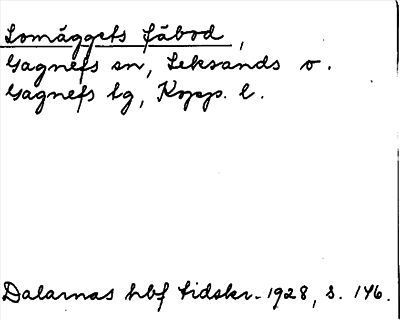 Lomäggets fäbod,
Gagnefs sn, Leksands o.
Gagnefs tg, Kopp. l.
Dalarnas hbf tidskr. 1928, s. 146.